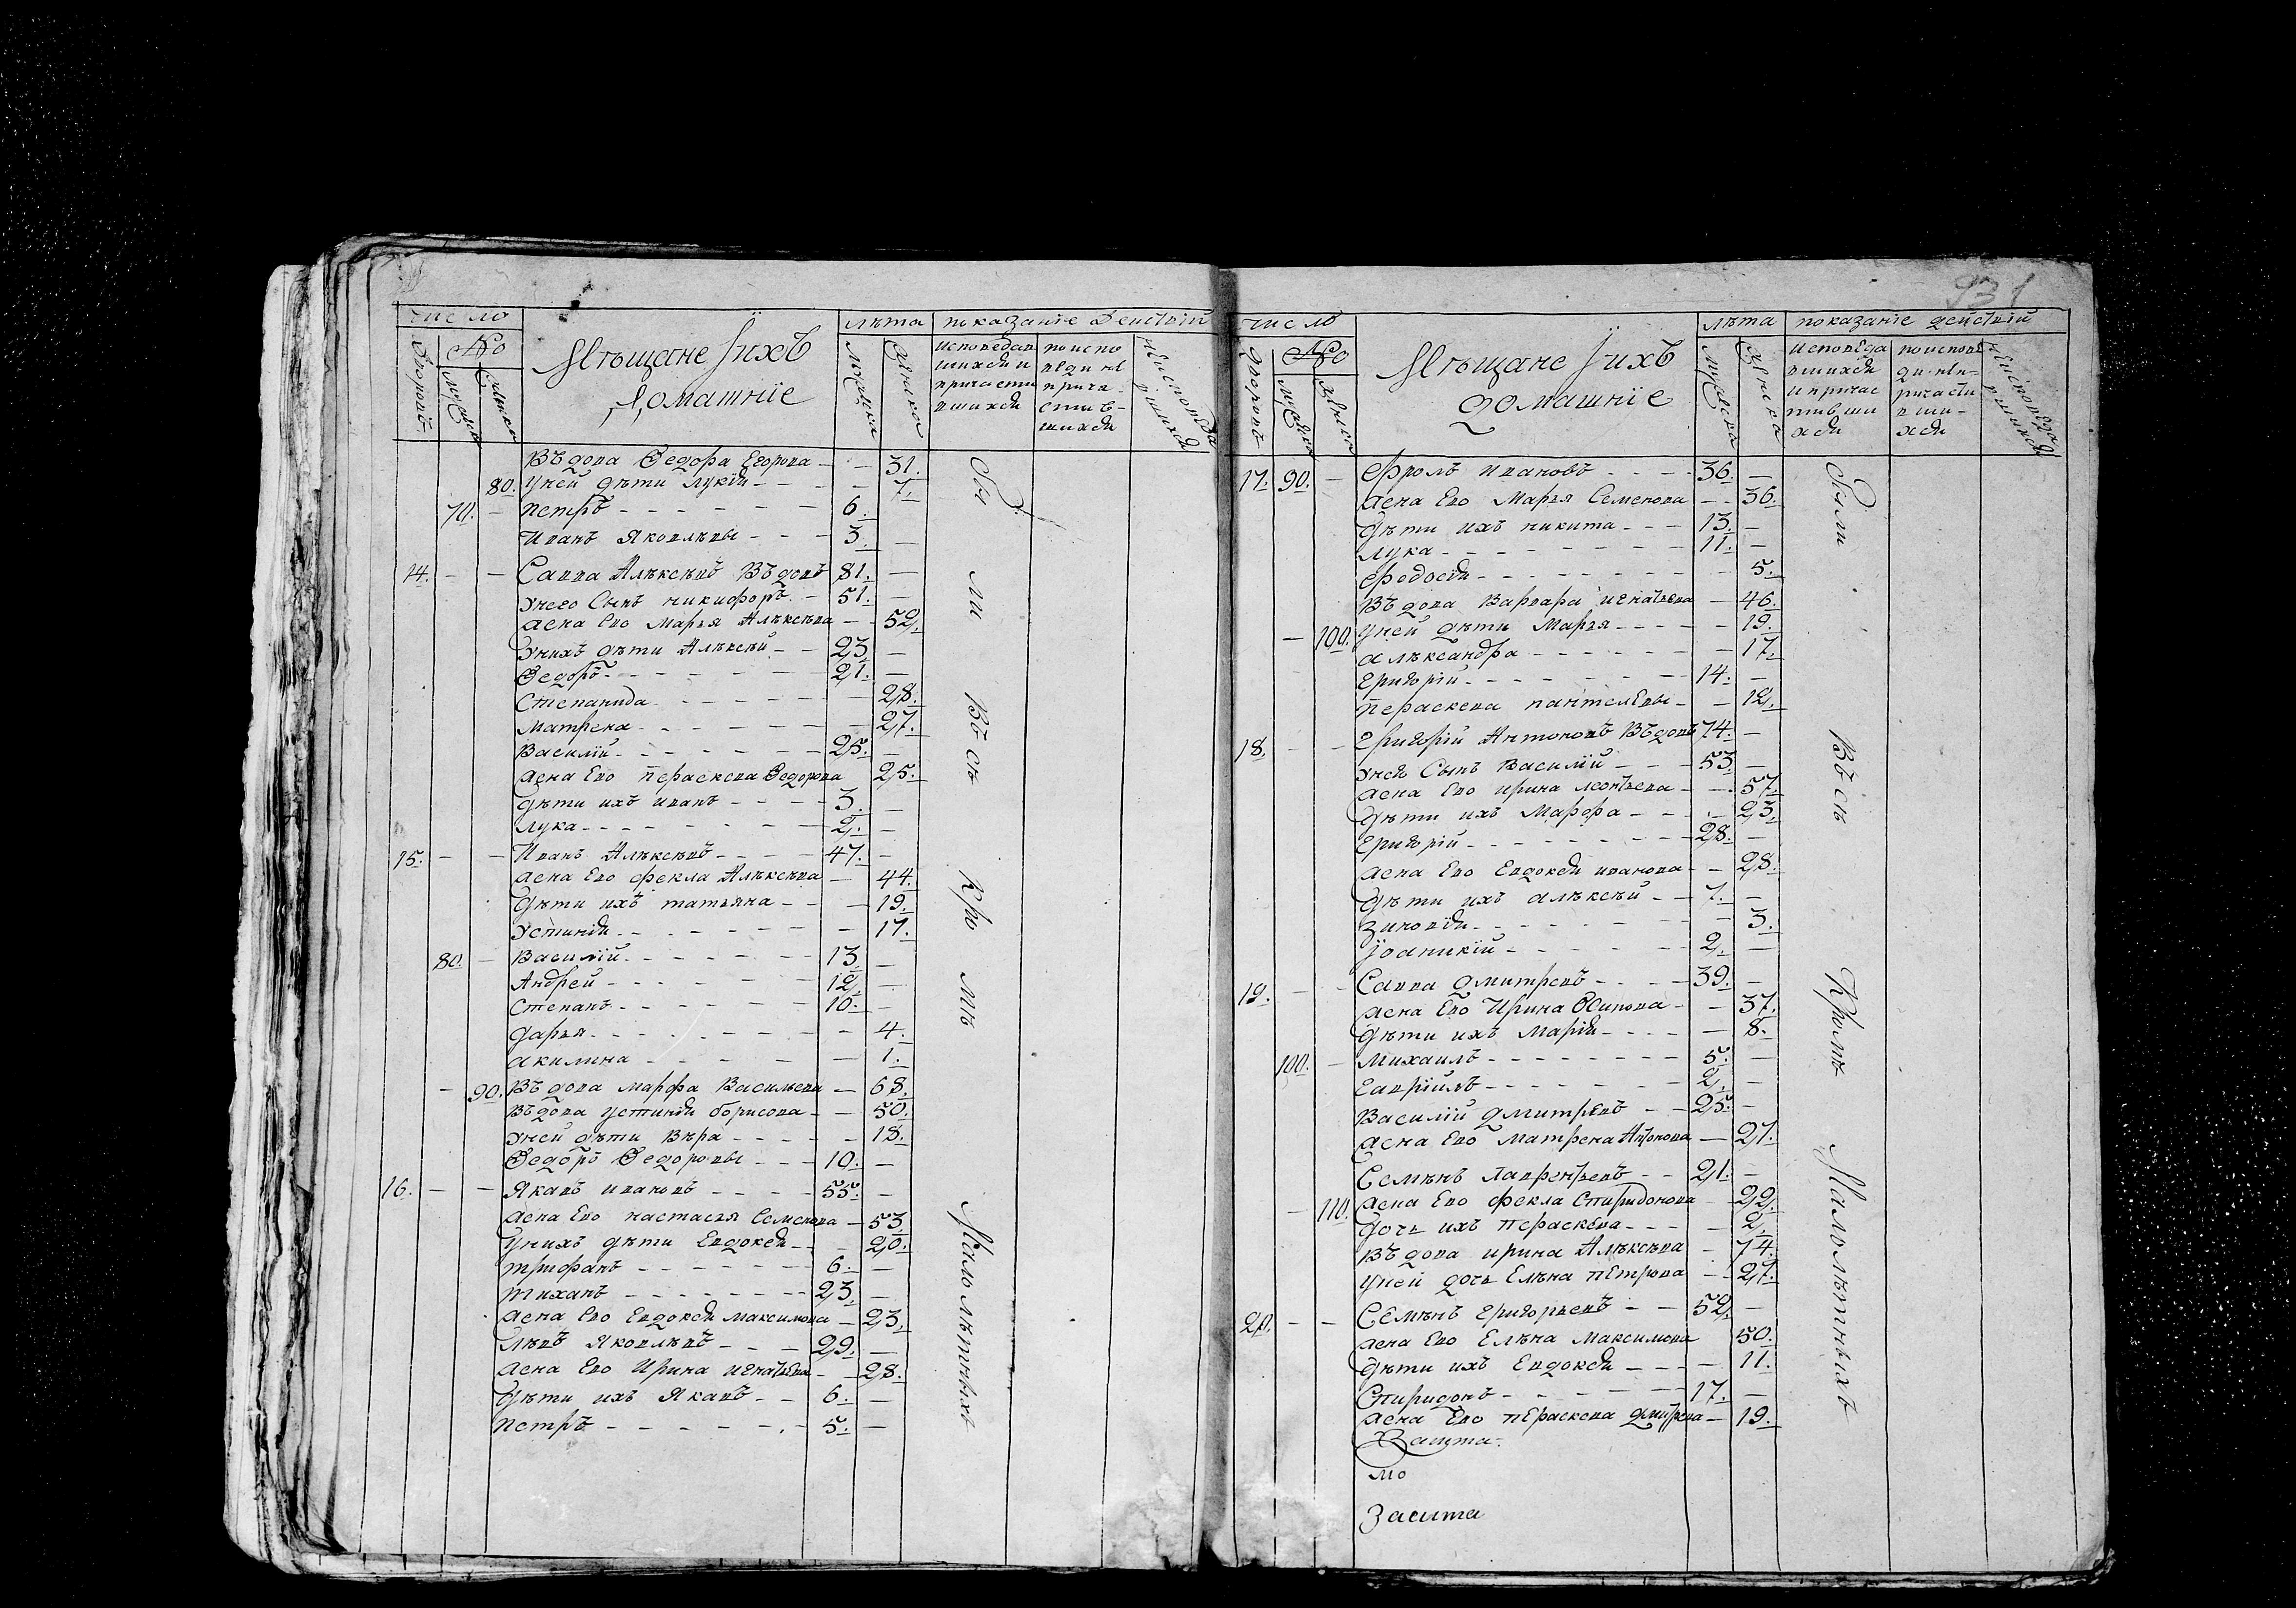 число
№
лѣта
показаніе действій
Дворовъ
Мѣщане ихъ
Домашніе
исповедав
шихся и
причасти
вшихся
по испо
веди не
прича
стив-
шихся
Вѣдова Ѳедора Егорова - - 31.
80. Уней дѣти Лукія - - 7.
70. - Петръ - - 6.
Иванъ Яковлѣвы - - 3. -
14. - - Савва Алѣксѣевъ Вѣдовъ 81. -
Унего Сынъ никифоръ - 51. -
жена Ево Марья Алѣксѣева - - 52.
Унихъ дѣти Алѣксѣй - - 23 -
Ѳедоръ - - 21. -
Степанида - - 28.
Матрена - - 27.
Василій - - 25. -
жена Ево Пераскева Ѳедорова 25.
дѣти ихъ иванъ - - 3. -
лука - - 2. -
15. - - Иванъ Алѣксѣевъ - - 47. -
жена Ево фекла Алѣксѣева - 44.
дѣти ихъ татьяна - - 19.
Устинія - - 17.
80. - Василій - - 13. -
Андрей - - 12. -
Степанъ - - 10. -
дарья - - 4.
акилина - - 1.
- 90. Вѣдова марфа Васильева - 68.
Вѣдова устинія борисова - - 50.
Уней дѣти Вѣра - - 18.
Ѳедоръ Ѳедоровы - - 10. -
16. - - Яковъ ивановъ - - 55. -
жена Ево настасья Семенова - 53.
Унихъ дѣти Евдокея - - 20.
трифанъ - - 6. -
тиханъ - - 23. -
жена Ево Евдокея Максимова - 23.
Лѣвъ Яковлѣвъ - - 29. -
жена Ево Ирина игнатьева - - 28.
дѣти ихъ Яковъ - - 6. -
Петръ - - 5. -
Всѣ
кро
мѣ
Малолѣтныхъ
931
число
№
лѣта
показаніе действій
дворовъ
Мѣщане ихъ
домашніе
исповеда
вшихся
и причас
тивши
хся
17. 90. - фролъ ивановъ - - 36. -
жена Ево Марья Семенова - - 36.
дѣти ихъ никита - - 13. -
лука - - 11. -
фодосія - - 5.
Вѣдова Варвара игнатьева - 46.
- 100. Уней дѣти Марья - - 19.
алѣксандра - - 17.
григорій - - 14. -
пераскева пантелѣевы - - 12.
18. - - григорій Антоновъ Вѣдовъ 74. -
Унея Сынъ Василій - - 53. -
жена Ево ирина леонтьева - - 57.
дѣти ихъ Марфа - - 23.
григорій - - 28. -
жена Ево Евдокея иванова - - 28.
дѣти ихъ алѣксѣй - - 7. -
зиновія - - 3.
іоаникій - - 2. -
19. - - Савва дмитревъ - - 39. -
жена Ево Ирина Осипова - - 37.
дѣти ихъ Марія - - 8.
100. - Михаилъ - - 5. -
гавріилъ - - 2. -
Василій дмитревъ - - 25. -
жена Ево Матрена Антонова - 27.
Семѣнъ лаврентьевъ - - 21. -
- 110. жена Ево фекла Спиридонова - 22.
дочь ихъ пераскева - - 2.
Вѣдова ирина Алѣксѣева - 74.
Уней дочь Елѣна петрова - - 27.
20. - - Семѣнъ григорьевъ - - 52. -
жена Ево Елѣна Максимова 50.
дѣти ихъ Евдокея - - 11.
Спиридонъ - - 17. -
жена Ево пераскева дмитрева - 19.
мо
Всѣ
Кромѣ
Малолѣтныхъ